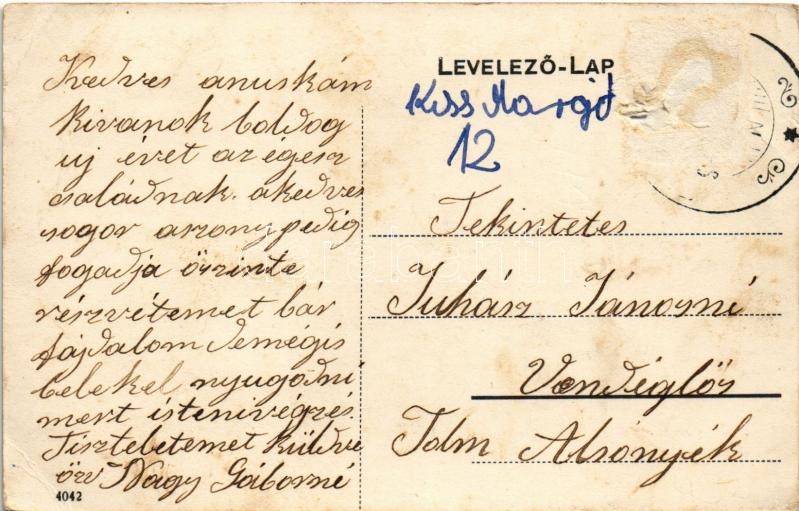 Kedves anuskám
kivánok boldog
uj évet az égész
saládnak. a kedves
sogor aszony pedig
fogadja öszinte
részvétemet bár
fájdalom demégis
belekel nyugodni
mert istenivégzés
Tiszteletemet küldve
özv Nagy Gáborné
4042
LEVELEZŐ-LAP
Kiss Margit
12
Tekintetes
Juhász Jánosné
Vendéglős
Tolm Alsónyék